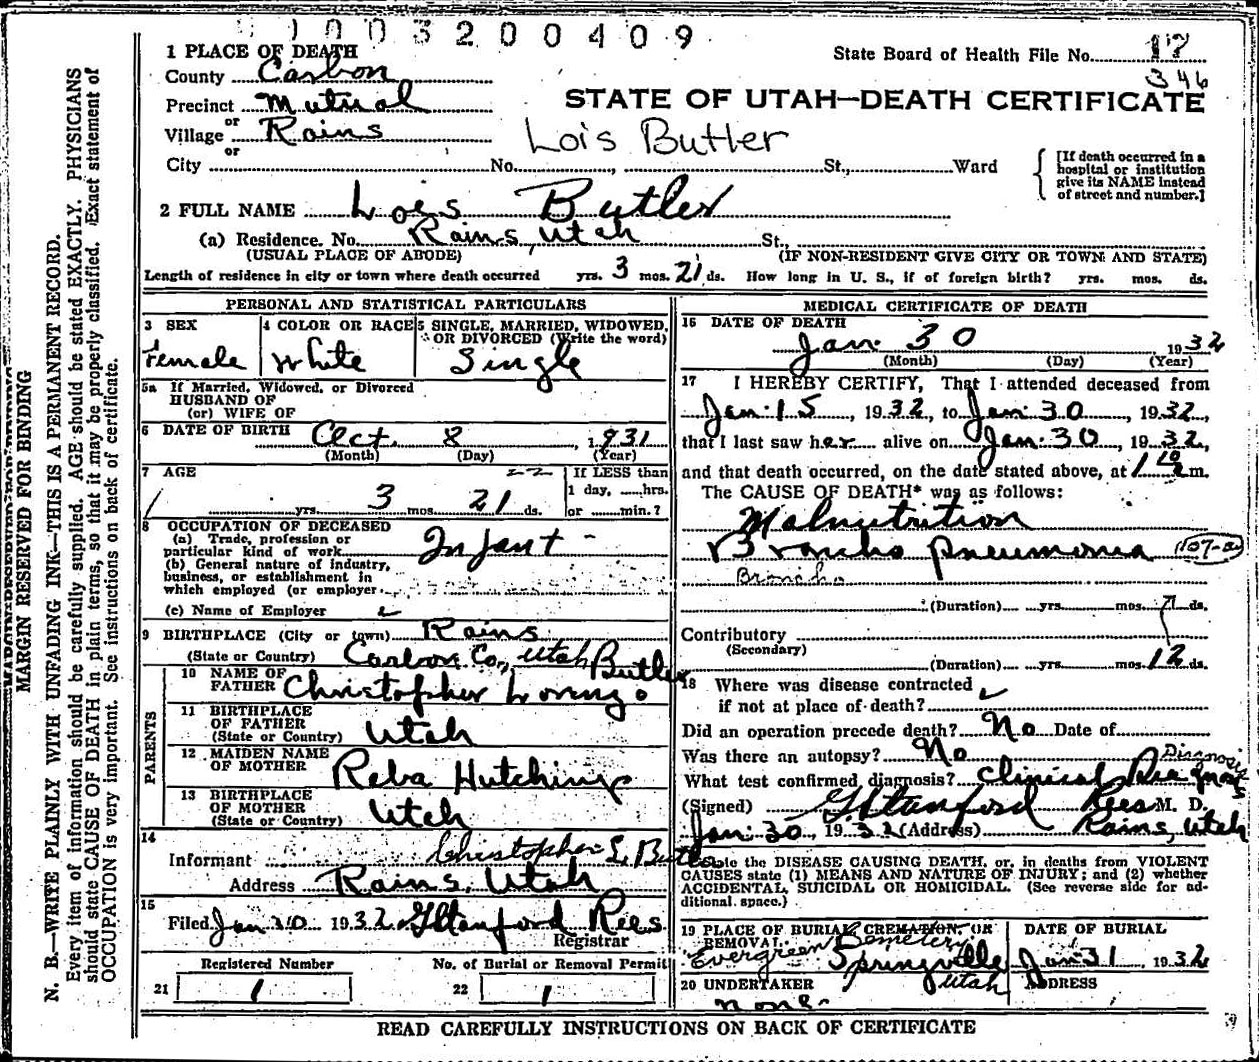 1003200409
1 PLACE OF DEATH
State Board of Health File No. 17
346
County Carbon
Precinct Mutual
STATE OF UTAH—DEATH CERTIFICATE
or
Village Rains
Lois Butler
or
City No. St., Ward
[If death occurred in a
hospital or institution
give its NAME instead
of street and number.]
2 FULL NAME Lois Butler
(a) Residence. No. Rains, Utah St.,
(USUAL PLACE OF ABODE) (IF NON-RESIDENT GIVE CITY OR TOWN AND STATE)
Length of residence in city or town where death occurred yrs. 3 mos. 21 ds. How long in U. S., if of foreign birth? yrs. mos. ds.
PERSONAL AND STATISTICAL PARTICULARS
3 SEX
Female
4 COLOR OR RACE
White
5 SINGLE, MARRIED, WIDOWED,
OR DIVORCED (Write the word)
Single
5a If Married, Widowed, or Divorced
HUSBAND OF
(or) WIFE OF
6 DATE OF BIRTH Oct. 8, 1931
(Month) (Day) (Year)
7 AGE 22
yrs. 3 mos. 21 ds.
If LESS than
1 day, hrs.
or min.?
8 OCCUPATION OF DECEASED
(a) Trade, profession or
particular kind of work Infant -
(b) General nature of industry,
business, or establishment in
which employed (or employer
(c) Name of Employer
9 BIRTHPLACE (City or town) Rains
(State or Country) Carbon Co., Utah
PARENTS
10 NAME OF
FATHER Christopher Lorenzo Butler
11 BIRTHPLACE
OF FATHER
(State or Country) Utah
12 MAIDEN NAME
OF MOTHER Reba Hutchings
13 BIRTHPLACE
OF MOTHER
(State or Country) Utah
14
Informant Christopher L. Butler
Address Rains, Utah
15
Filed Jan 30 1932 G Stanford Rees
Registrar
Registered Number
21 1
No. of Burial or Removal Permit
22 1
MEDICAL CERTIFICATE OF DEATH
16 DATE OF DEATH
Jan. 30 1932
(Month) (Day) (Year)
17 I HEREBY CERTIFY, That I attended deceased from
Jan. 15, 1932, to Jan. 30, 1932,
that I last saw her alive on Jan. 30, 1932,
and that death occurred, on the date stated above, at 1 m.
The CAUSE OF DEATH* was as follows:
Malnutrition
Broncho Pneumonia 107-a
Broncho
(Duration) yrs. mos. 7 ds.
Contributory
(Secondary)
(Duration) yrs. mos. 12 ds.
18 Where was disease contracted
if not at place of death?
Did an operation precede death? No Date of
Was there an autopsy? No
Diagnosis
What test confirmed diagnosis? Clinical Diagnosis
(Signed) G Stanford Rees M. D.
Jan. 30, 1932 (Address) Rains, Utah
State the DISEASE CAUSING DEATH, or, in deaths from VIOLENT
CAUSES state (1) MEANS AND NATURE OF INJURY; and (2) whether
ACCIDENTAL, SUICIDAL OR HOMICIDAL. (See reverse side for ad-
ditional space.)
19 PLACE OF BURIAL, CREMATION, OR
REMOVAL
Evergreen Cemetery
Springville
Utah
DATE OF BURIAL
Jan 31, 1932
20 UNDERTAKER
none
ADDRESS
READ CAREFULLY INSTRUCTIONS ON BACK OF CERTIFICATE
MARGIN RESERVED FOR BINDING
N. B.—WRITE PLAINLY WITH UNFADING INK—THIS IS A PERMANENT RECORD.
Every item of information should be carefully supplied. AGE should be stated EXACTLY. PHYSICIANS
should state CAUSE OF DEATH in plain terms, so that it may be properly classified. Exact statement of
OCCUPATION is very important. See instructions on back of certificate.